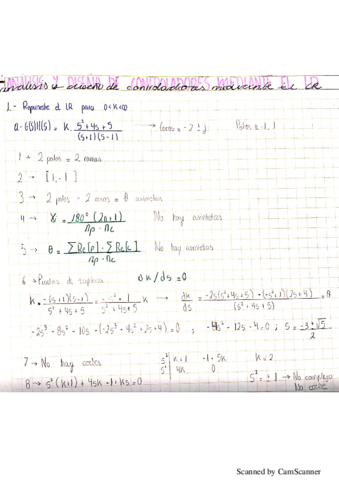 ANÁLISIS Y DISEÑO DE CONTROLADORES MEDIANTE EL LR
análisis y diseño de controladores mediante el LR
1.- Represente el LR para 0<K<∞
a- G(s)H(s) = K (s²+4s+5)/((s+1)(s-1)) → Ceros = -2 ± j Polos = -1, 1
1 → 2 polos = 2 ramas
2 → [1,-1]
3 → 2 polos - 2 ceros = 0 asíntotas
4 → γ = 180º(2n+1)/(np-nc) No hay asíntotas
5 → θ = (∑Re[p] - ∑Re[c])/(np-nc) No hay asíntotas
6 → Puntos de ruptura dk/ds = 0
K = -(s+1)(s-1)/(s²+4s+5) = (-s²+1)/(s²+4s+5) K → dk/ds = (-2s(s²+4s+5) - (-s²+1)(2s+4))/(s²+4s+5) = 0
-2s³ - 8s² - 10s - (-2s³ - 4s² + 2s + 4) = 0 ; -4s² - 12s - 4 = 0 ; s = (-3 ± √5)/2
7 → No hay
s² | K+1 -1+5K K=2
8 → s²(K+1) + 4sK - 1 + K5 = 0
s | 4K 0
s² = ± 1 → No compleja
No corte
Scanned by CamScanner